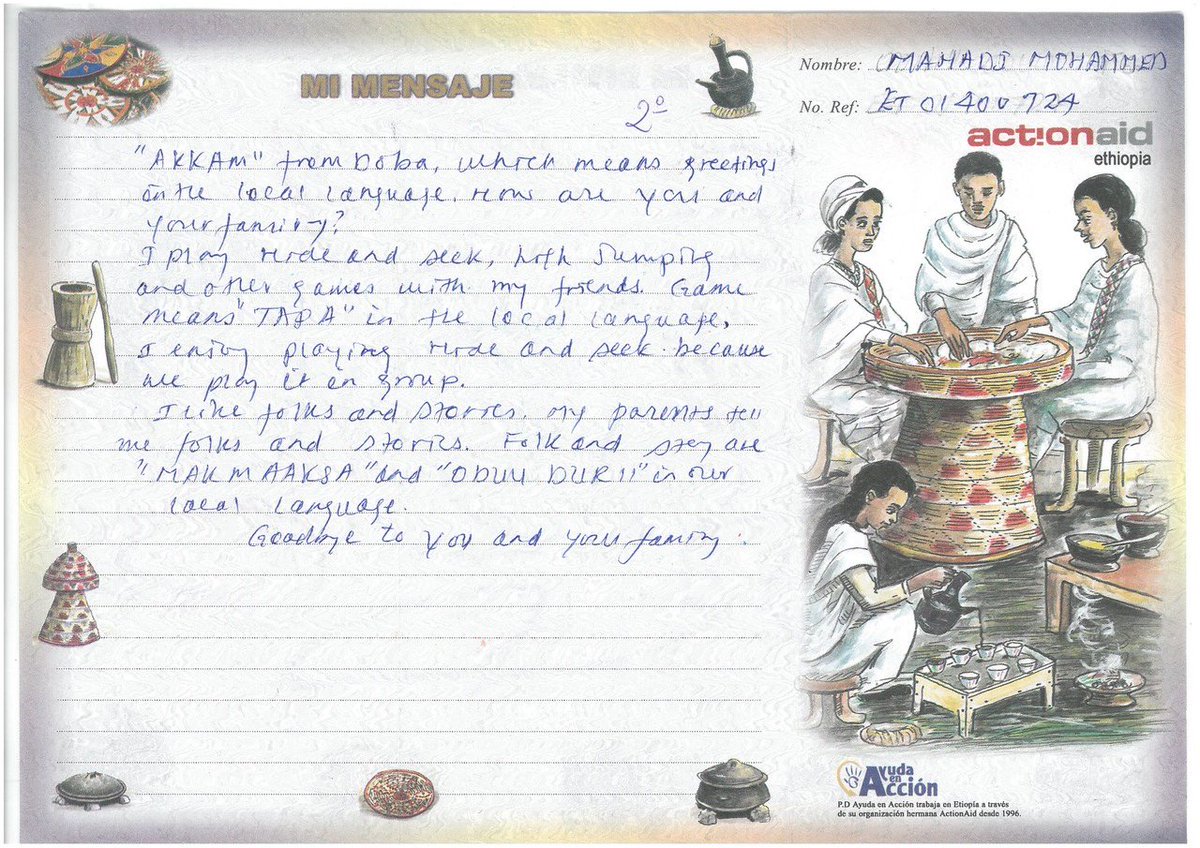 MI MENSAJE
Nombre: MAHADI MOHAMMED
No. Ref: ET 01400724
2º
act!onaid
ethiopia
"AKKAM" from Doba, which means greetings
in the local language. How are you and
your family?
I play Hide and seek, high Jumping
and other games with my friends. Game
means "TAPA" in the local language,
I enjoy playing Hide and seek because
we play it in group.
I like folks and stories. My parents tell
me folks and stories. Folk and story are
"MAKMAAKSA" and "ODUU DURII" in our
local language.
Goodbye to you and your family.
Ayuda
en
Acción
P.D Ayuda en Acción trabaja en Etiopía a través
de su organización hermana ActionAid desde 1996.